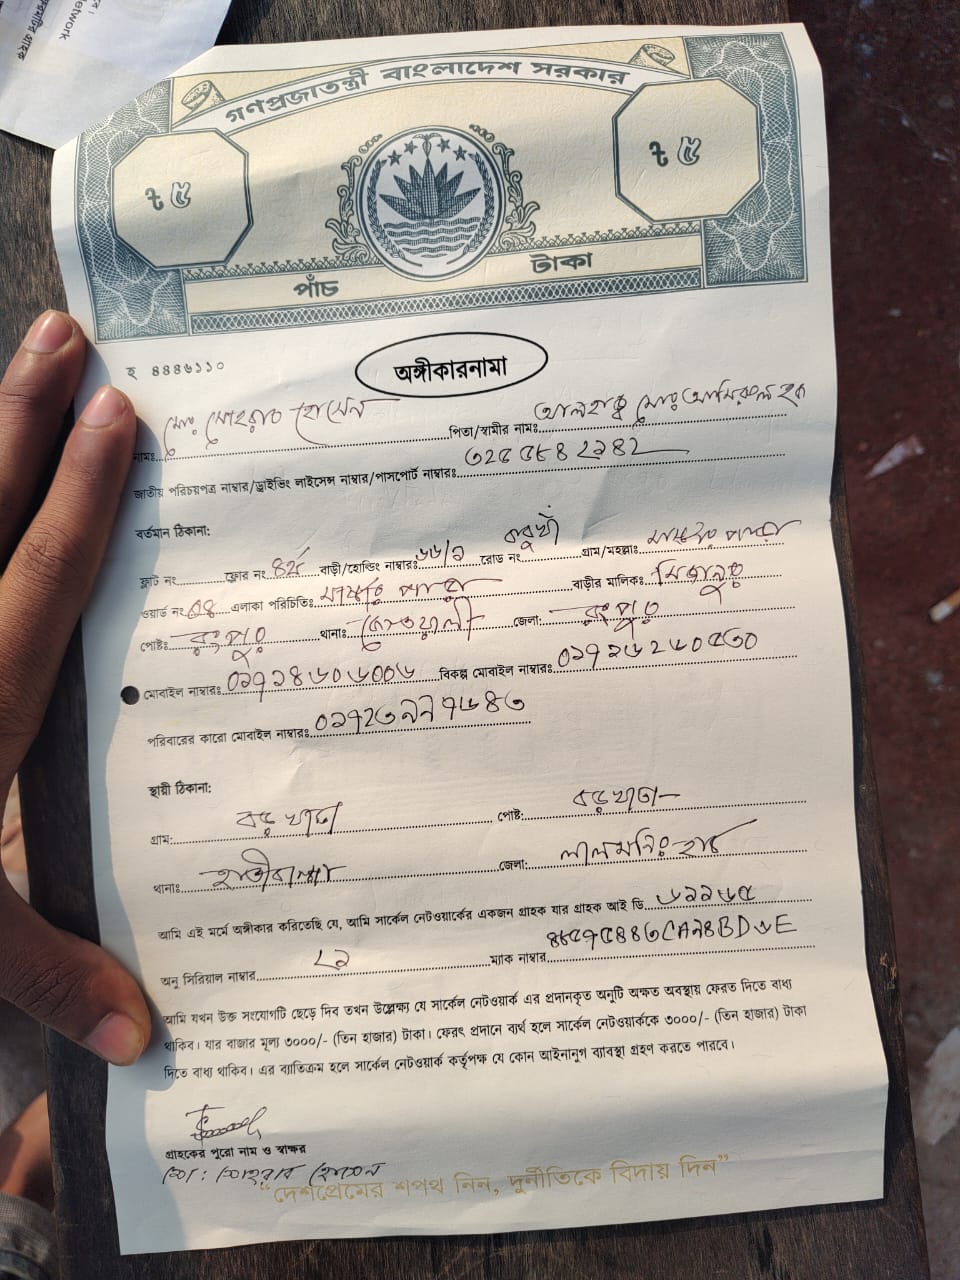 network
গণপ্রজাতন্ত্রী বাংলাদেশ সরকার
৳ ৫
৳ ৫
পাঁচ টাকা
হ ৪৪৪৬১১০
অঙ্গীকারনামা
নামঃ মোঃ সোহরাব হোসেন পিতা/স্বামীর নামঃ আলহাজ্ব মোঃ আমিরুল হক
জাতীয় পরিচয়পত্র নাম্বার/ড্রাইভিং লাইসেন্স নাম্বার/পাসপোর্ট নাম্বারঃ
বর্তমান ঠিকানা:
ফ্লাট নং ফ্লোর নং ৪র্থ বাড়ী/হোল্ডিং নাম্বারঃ ৬৬/১ রোড নং গ্রাম/মহল্লাঃ পাড়া
ওয়ার্ড নং এলাকা পরিচিতিঃ পাড়া বাড়ীর মালিকঃ মিজানুর
পোষ্টঃ রংপুর থানাঃ কোতয়ালী জেলা: রংপুর
মোবাইল নাম্বারঃ বিকল্প মোবাইল নাম্বারঃ
পরিবারের কারো মোবাইল নাম্বারঃ
স্থায়ী ঠিকানা:
গ্রাম: বড়খাতা পোষ্ট: বড়খাতা
থানাঃ হাতীবান্ধা জেলা: লালমনিরহাট
আমি এই মর্মে অঙ্গীকার করিতেছি যে, আমি সার্কেল নেটওয়ার্কের একজন গ্রাহক যার গ্রাহক আই ডি
অনু সিরিয়াল নাম্বার ম্যাক নাম্বার
আমি যখন উক্ত সংযোগটি ছেড়ে দিব তখন উল্লেক্ষ্য যে সার্কেল নেটওয়ার্ক এর প্রদানকৃত অনুটি অক্ষত অবস্থায় ফেরত দিতে বাধ্য
থাকিব। যার বাজার মূল্য ৩০০০/- (তিন হাজার) টাকা। ফেরৎ প্রদানে ব্যর্থ হলে সার্কেল নেটওয়ার্ককে ৩০০০/- (তিন হাজার) টাকা
দিতে বাধ্য থাকিব। এর ব্যতিক্রম হলে সার্কেল নেটওয়ার্ক কর্তৃপক্ষ যে কোন আইনানুগ ব্যাবস্থা গ্রহণ করতে পারবে।
গ্রাহকের পুরো নাম ও স্বাক্ষর
মো: সোহরাব হোসেন
“দেশপ্রেমের শপথ নিন, দুর্নীতিকে বিদায় দিন”